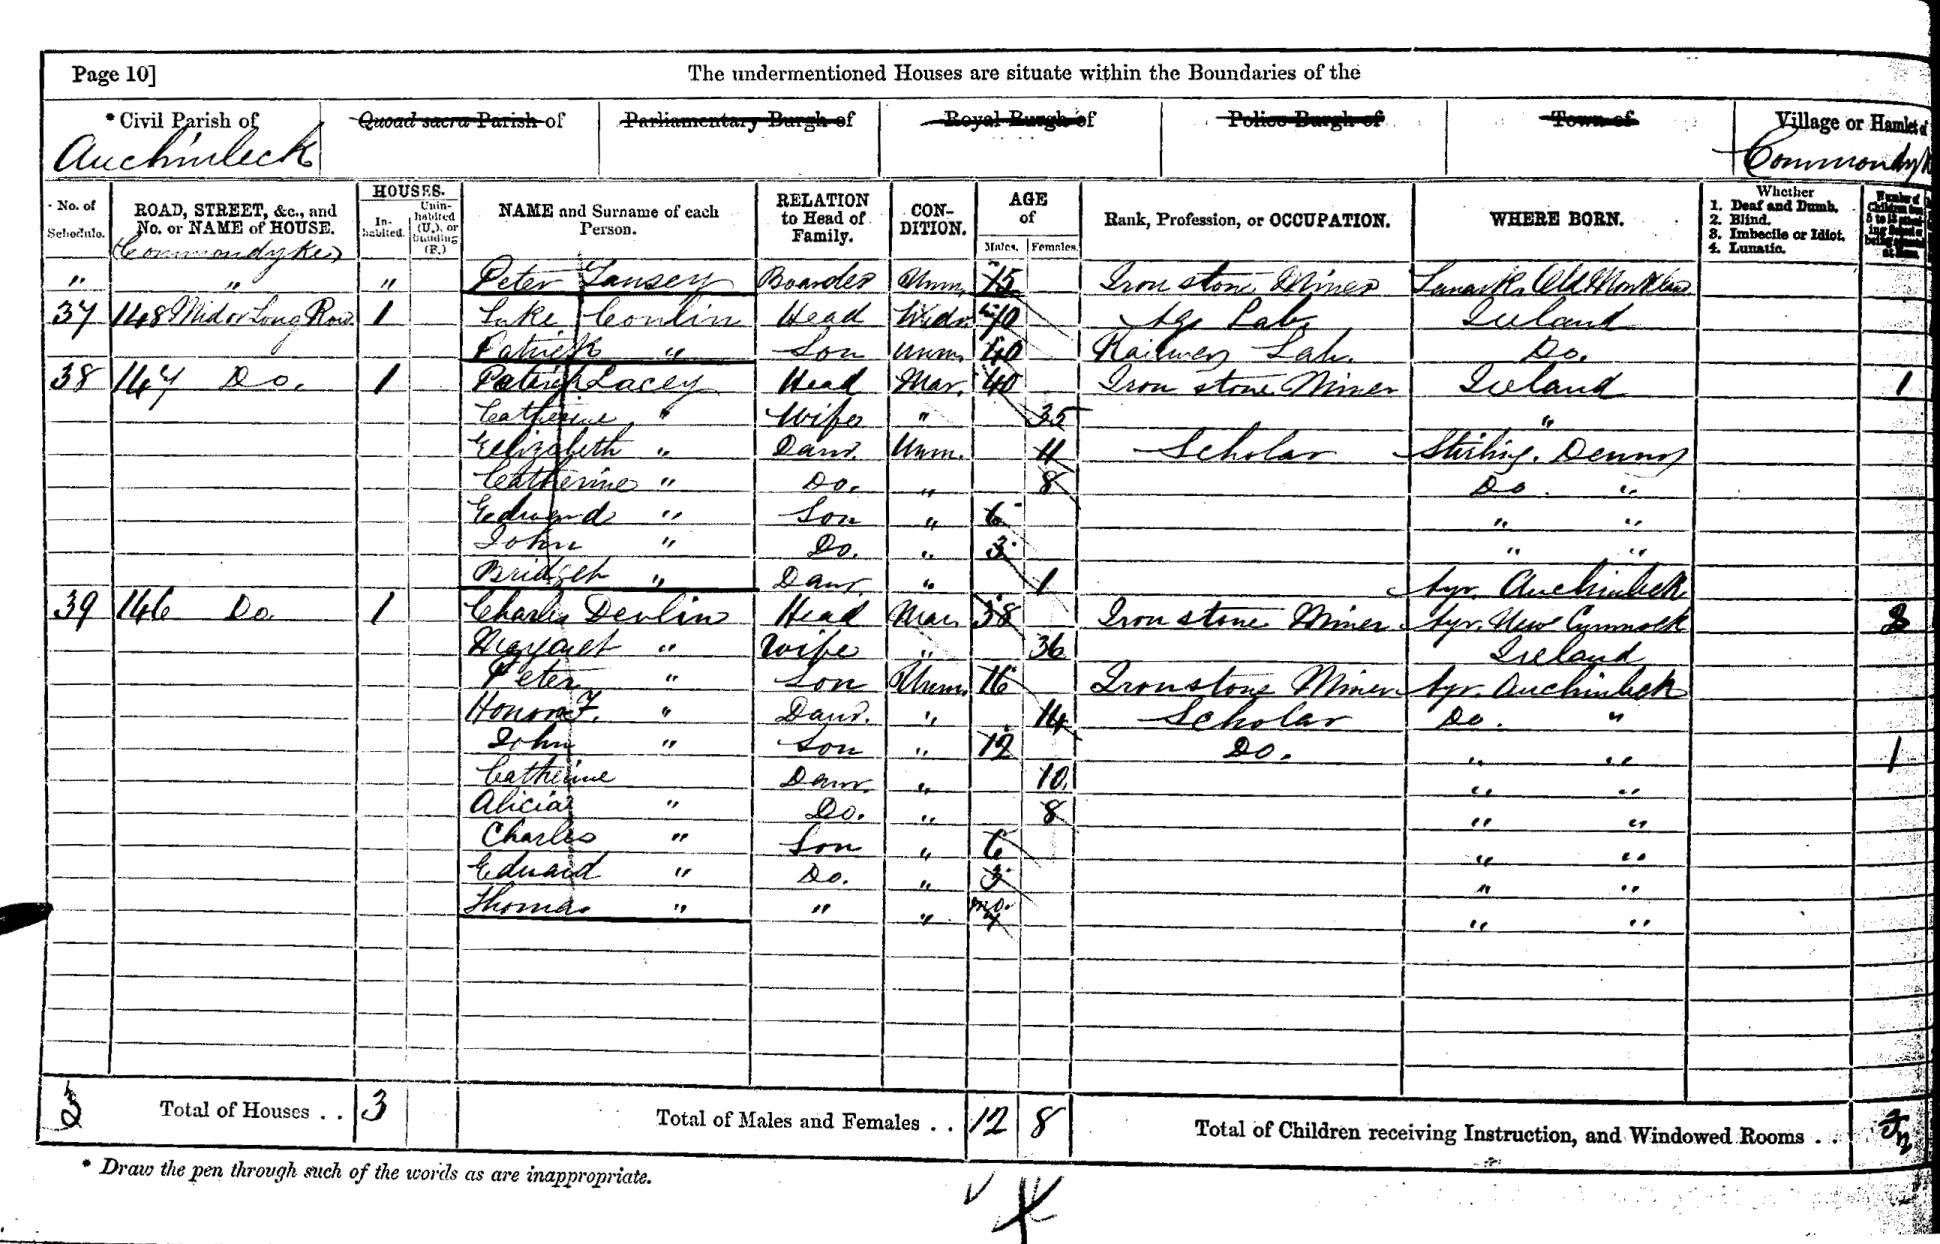 Page 10] The undermentioned Houses are situate within the Boundaries of the
* Civil Parish of Quoad sacra Parish of Parliamentary Burgh of Royal Burgh of Police Burgh of Town of Village or Hamlet of
Auchinleck Commondyke
No. of Schedule. ROAD, STREET, &c., and No. or NAME of HOUSE. HOUSES. Inhabited. Uninhabited (U.), or building (B.) NAME and Surname of each Person. RELATION to Head of Family. CONDITION. AGE of Males. Females. Rank, Profession, or OCCUPATION. WHERE BORN. Whether 1. Deaf and Dumb. 2. Blind. 3. Imbecile or Idiot. 4. Lunatic.
Commondykes
" " " Peter Boarder Unm. 15 Iron stone Miner Lanark Old Monkland
37 148 Mid or Long Row 1 Luke Conlin Head Widr 70 Ag. Lab. Ireland
Patrick " Son Unm. 40 Railway Lab. Do.
38 147 Do. 1 Patrick Lacey Head Mar. 40 Iron stone Miner Ireland 1
Catherine " Wife " 35 "
Elizabeth " Daur. Unm. 11 Scholar Stirling. Denny
Catherine " Do. " 8 Do. "
Edward " Son " 6 " "
John " Do. " 3 " "
Bridget " Daur. " 1 Ayr. Auchinleck
39 146 Do 1 Charles Devlin Head Mar. 38 Iron stone Miner Ayr. New Cumnock
Margaret " Wife " 36 Ireland
Peter " Son Unm. 16 Ironstone Miner Ayr. Auchinleck
Honora F. " Daur. " 14 Scholar Do. "
John " Son " 12 Do. " " 1
Catherine Daur. " 10 " "
Alicia " Do. " 8 " "
Charles " Son " 6 " "
Edward " Do. " 3 " "
Thomas " " " mo. " "
3 Total of Houses . . 3 Total of Males and Females . . 12 8 Total of Children receiving Instruction, and Windowed Rooms .
* Draw the pen through such of the words as are inappropriate.